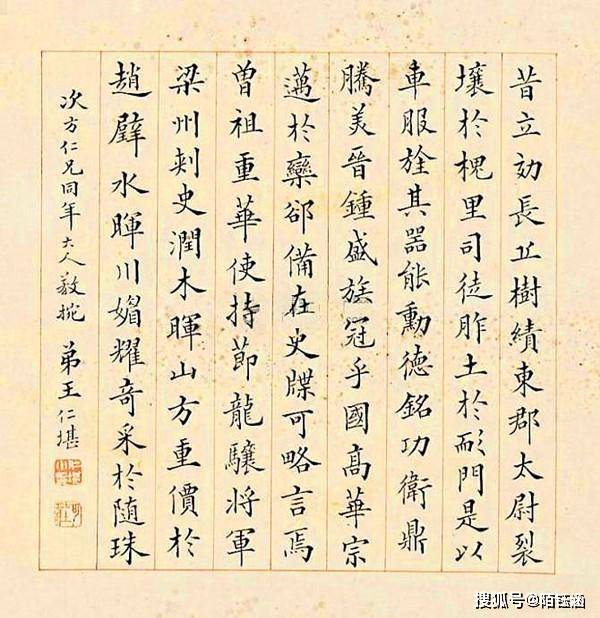 昔立効長丘樹績東郡太尉裂
壤於槐里司徒胙土於彤門是以
車服旌其器能勳德銘功衛鼎
騰美晉鍾盛族冠乎國高華宗
邁於欒郤備在史牒可略言焉
曾祖重華使持節龍驤將軍
梁州刺史潤木暉山方重價於
趙璧水暉川媚耀奇采於隨珠
次方仁兄同年大人教捥 弟王仁堪
搜狐号@陌钰涵